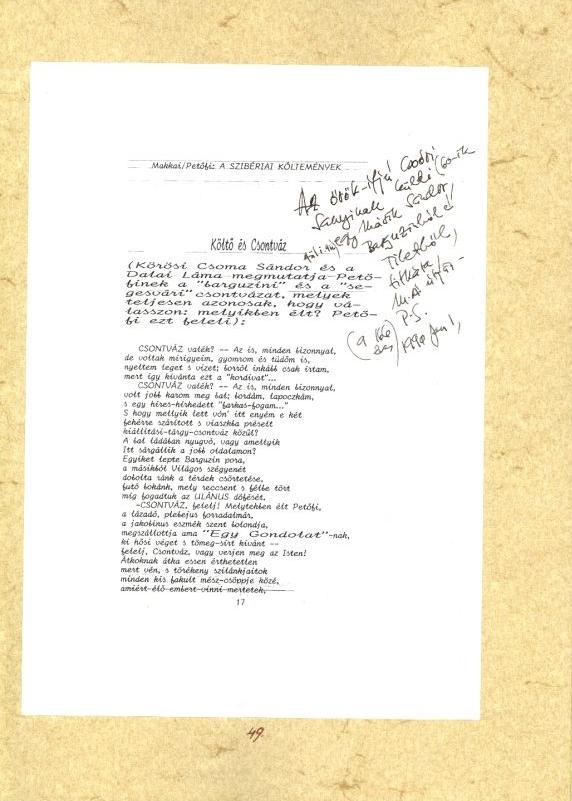 Makkai/Petőfi: A SZIBÉRIAI KÖLTEMÉNYEK
Az örök-ifjú Csoóri
Sanyinak küldi 60-ik
egy másik Sándor,
Barguzinból s
Tibetből,
titkára
M.A.
P.S.
(a
1990 Jun 1,
Költő és Csontváz
(Körösi Csoma Sándor és a
Dalai Láma megmutatja Pető-
finek a "barguzini" és a "se-
gesvári" csontvázat, melyek
teljesen azonosak, hogy vá-
lasszon: melyikben élt? Pető-
fi ezt feleli):
CSONTVÁZ valék? -- Az is, minden bizonnyal,
de voltak mirigyeim, gyomrom és tüdőm is,
nyeltem leget s vizet; borról inkább csak írtam,
mert így kívánta ezt a "kordivat"...
CSONTVÁZ valék? -- Az is, minden bizonnyal,
volt jobb karom meg bal; bordám, lapoczkám,
s egy híres-hírhedett "farkas-fogam..."
S hogy mellyik lett vón' itt enyém e két
fehérre szárított s viaszkba présett
kiállítási-tárgy-csontváz közűl?
A bal ládában nyugvó, vagy amellyik
Itt sárgállik a jobb oldalamon?
Egyiket lepte Barguzin pora,
a másikból Világos szégyenét
dobolta ránk a térdek csörtetése,
futó bokánk, mely reccsent s félbe tört
míg fogadtuk az ULÁNUS döfését.
-CSONTVÁZ, felelj! Melytekben élt Petőfi,
a lázadó, plebejus forradalmár,
a jakobinus eszmék szent bolondja,
megszállottja ama "Egy Gondolat"-nak,
ki hősi véget s tömeg-sírt kívánt --
felelj, Csontváz, vagy verjen meg az Isten!
Átkoknak átka essen érthetetlen
mert vén, s törékeny szilánkjaitok
minden kis fakult mész-csöppje közé,
amiért élő embert vinni mertetek,
17
49